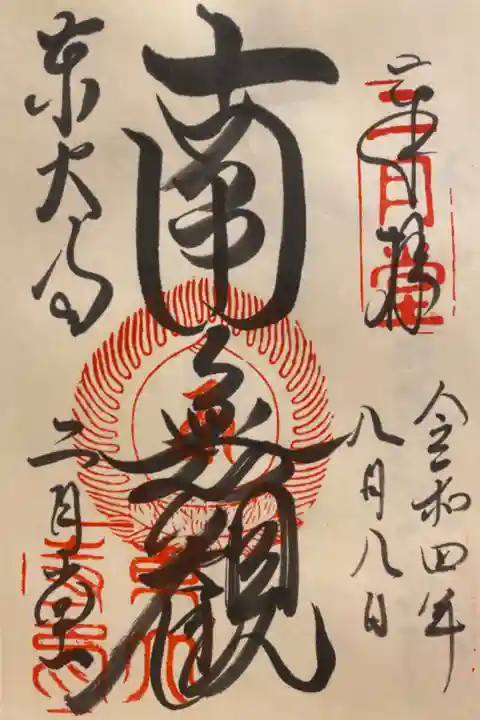 奉拝
二月堂
令和四年
八月八日
南無観
東大寺
二月堂